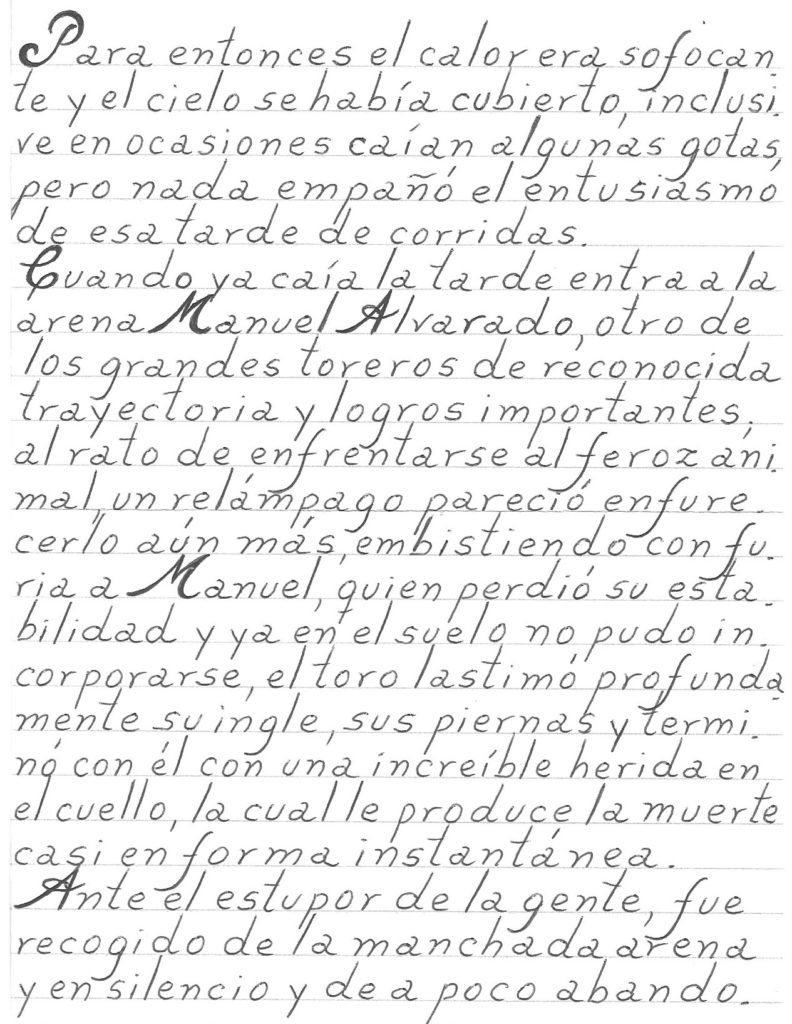 Para entonces el calor era sofocan_
te y el cielo se había cubierto, inclusi_
ve en ocasiones caían algunas gotas,
pero nada empañó el entusiasmo
de esa tarde de corridas.
Cuando ya caía la tarde entra a la
arena Manuel Alvarado, otro de
los grandes toreros de reconocida
trayectoria y logros importantes;
al rato de enfrentarse al feroz ani_
mal, un relámpago pareció enfure_
cerlo aún más, embistiendo con fu_
ria a Manuel, quien perdió su esta_
bilidad y ya en el suelo no pudo in_
corporarse, el toro lastimó profunda_
mente su ingle, sus piernas y termi_
nó con él con una increíble herida en
el cuello, la cual le produce la muerte
casi en forma instantánea.
Ante el estupor de la gente, fue
recogido de la manchada arena
y en silencio y de a poco abando_